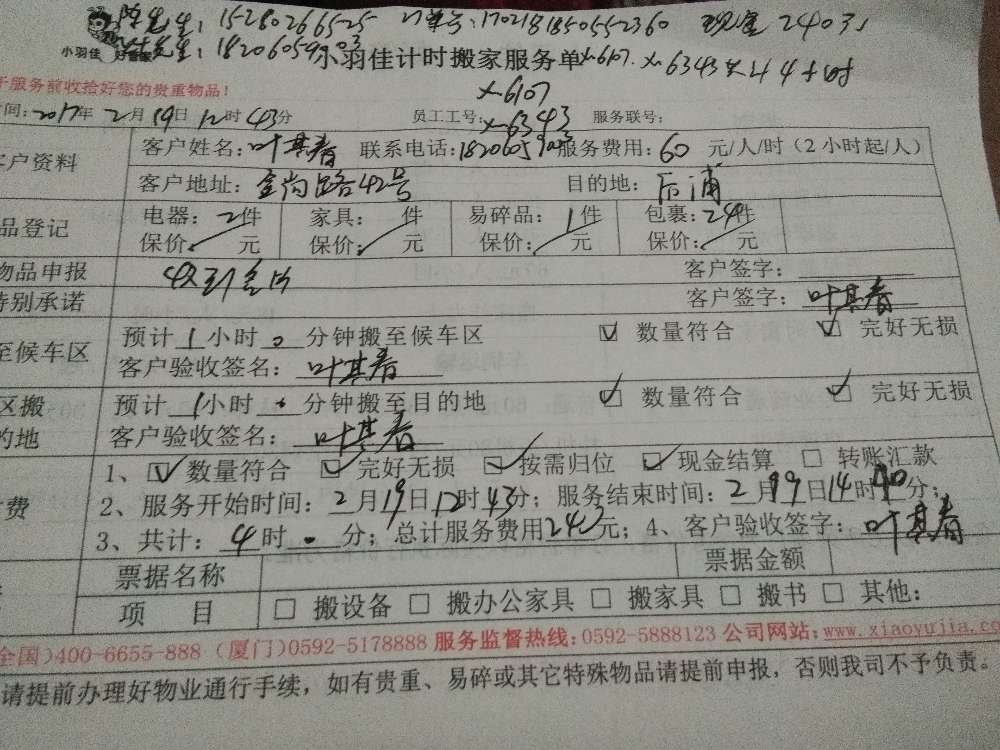 陈先生：15280266525 订单号：1702181850552360 现金 240元
叶先生：18206059003
小羽佳 好管家 小羽佳计时搬家服务单 X-6107. X-6343 共4小时
于服务前收拾好您的贵重物品！ X-6107
时间：2017年2月19日12时43分 员工工号：X-6343 服务联号：
客户资料 客户姓名：叶其春 联系电话：18206059003 服务费用：60 元/人/时（2小时起/人）
客户地址：金尚路42号 目的地：后浦
品登记 电器：2件 家具： 件 易碎品：1件 包裹：24件
保价： 元 保价： 元 保价： 元 保价： 元
物品申报 客户签字：
特别承诺 客户签字：叶其春
至候车区 预计1小时0分钟搬至候车区 ☑ 数量符合 ☑ 完好无损
客户验收签名：叶其春
区搬 预计1小时0分钟搬至目的地 ☑ 数量符合 ☑ 完好无损
的地 客户验收签名：叶其春
1、☑ 数量符合 ☑ 完好无损 ☑ 按需归位 ☑ 现金结算 □ 转账汇款
费 2、服务开始时间：2月19日12时43分；服务结束时间：2月19日14时40分；
3、共计：4时0分；总计服务费用240元；4、客户验收签字：叶其春
票据名称 票据金额
项 目 □ 搬设备 □ 搬办公家具 □ 搬家具 □ 搬书 □ 其他：
全国）400-6655-888（厦门）0592-5178888 服务监督热线：0592-5888123 公司网站：www.xiaoyujia.co
请提前办理好物业通行手续，如有贵重、易碎或其它特殊物品请提前申报，否则我司不予负责。